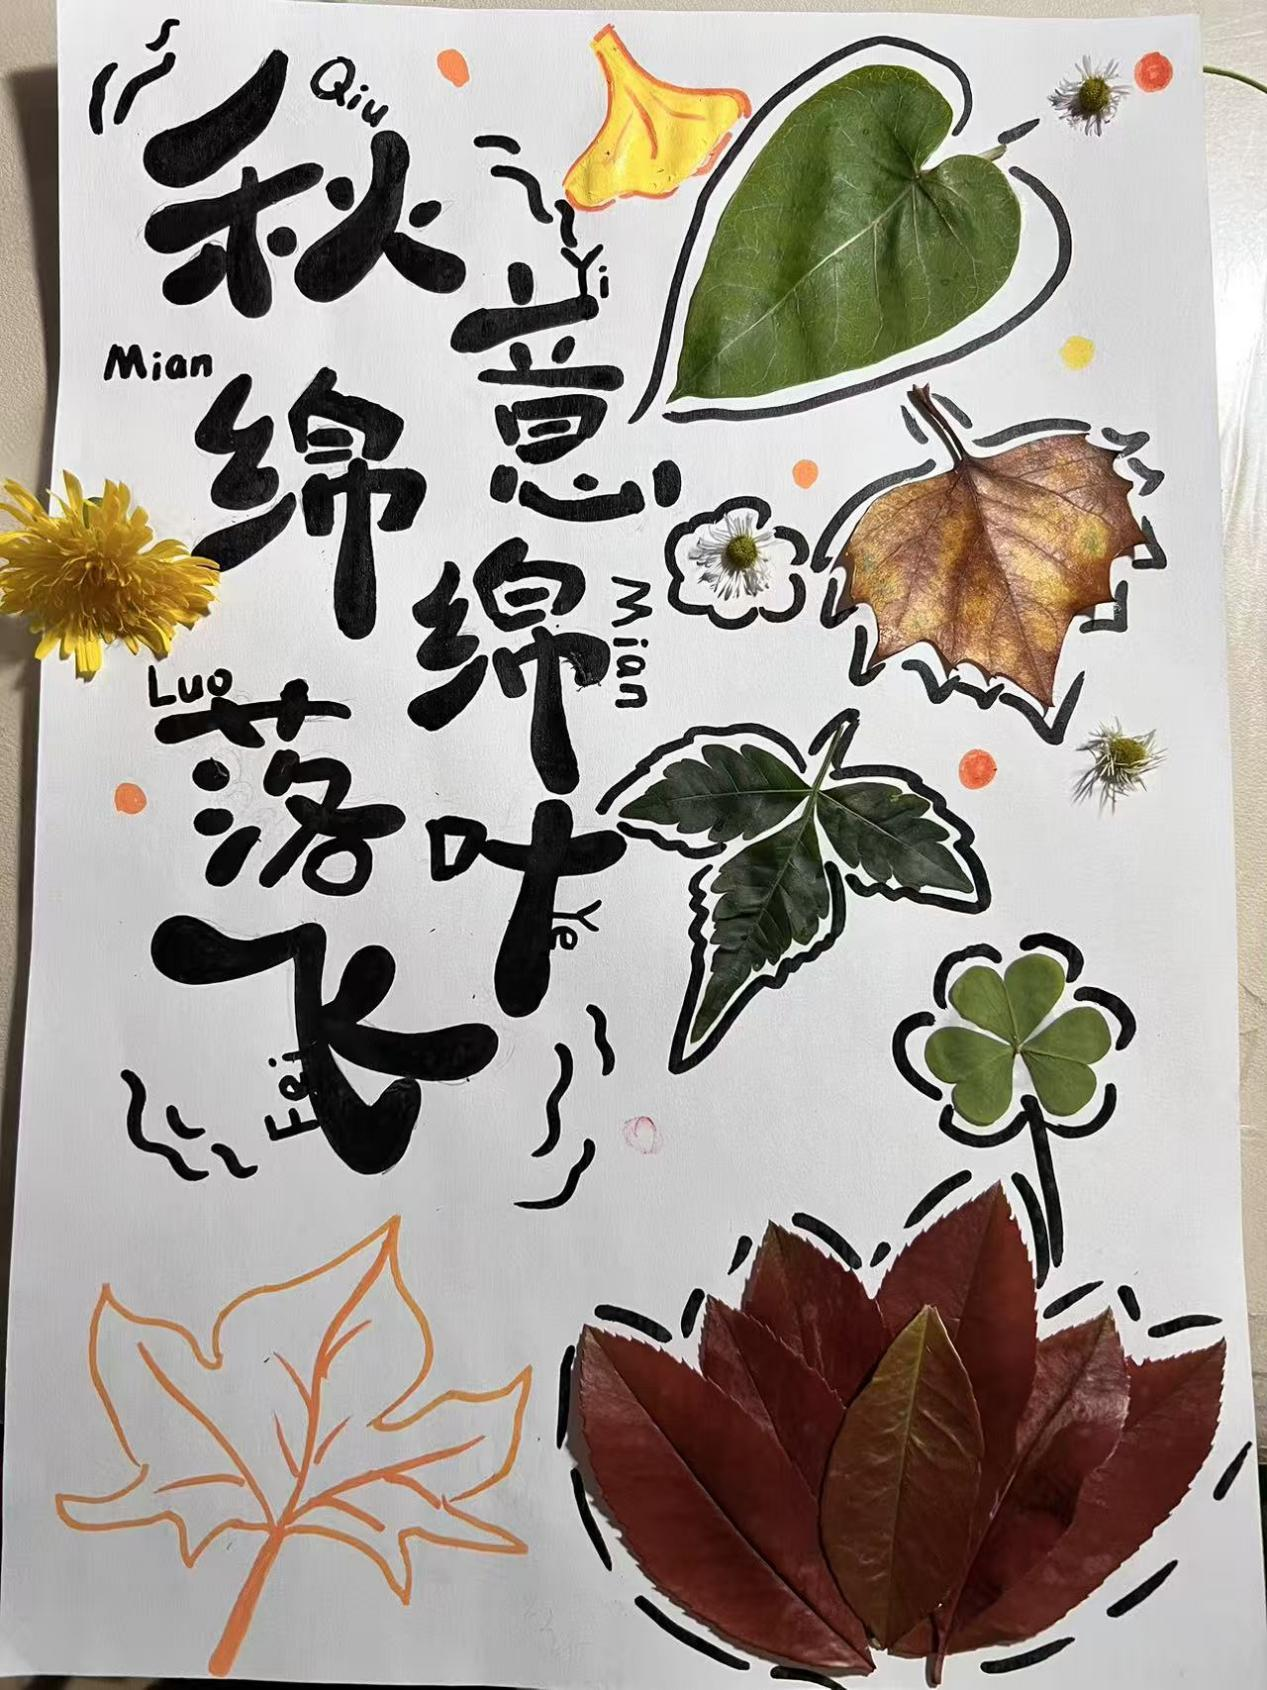 Qiu
秋
Yi
意
Mian
绵
绵
Mian
Luo
落
叶
Ye
飞
Fei